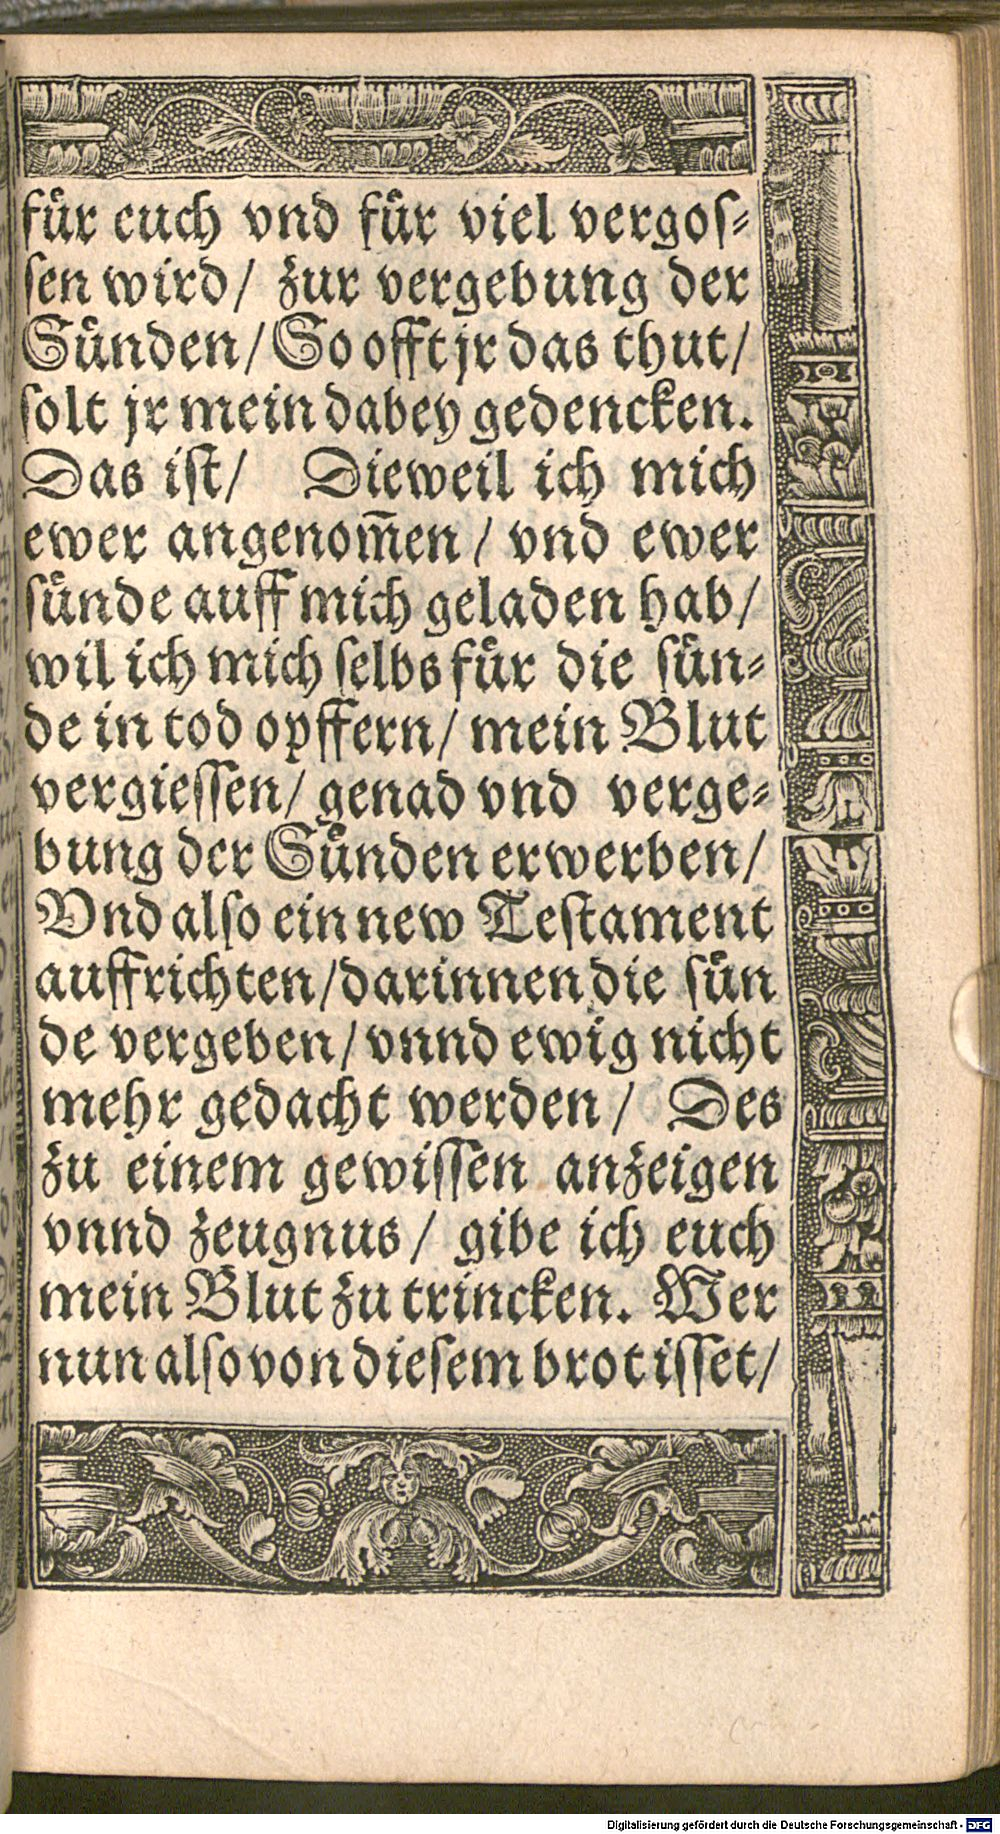 fuͤr euch vnd fuͤr viel vergoſ⸗
ſen wird/ zur vergebung der
Suͤnden/ So offt jr das thut/
ſolt jr mein dabey gedencken.
Das iſt/ Dieweil ich mich
ewer angenom̅en/ vnd ewer
ſuͤnde auff mich geladen hab/
wil ich mich ſelbs fuͤr die ſuͤn⸗
de in tod opffern/ mein Blut
vergieſſen/ genad vnd verge⸗
bung der Suͤnden erwerben/
Vnd alſo ein new Teſtament
auffrichten/ darinnen die ſuͤn
de vergeben/ vnnd ewig nicht
mehr gedacht werden/ Des
zu einem gewiſſen anzeigen
vnnd zeugnus/ gibe ich euch
mein Blut zu trincken. Wer
nun alſo von dieſem brot iſſet/
Digitalisierung gefördert durch die Deutsche Forschungsgemeinschaft - DFG